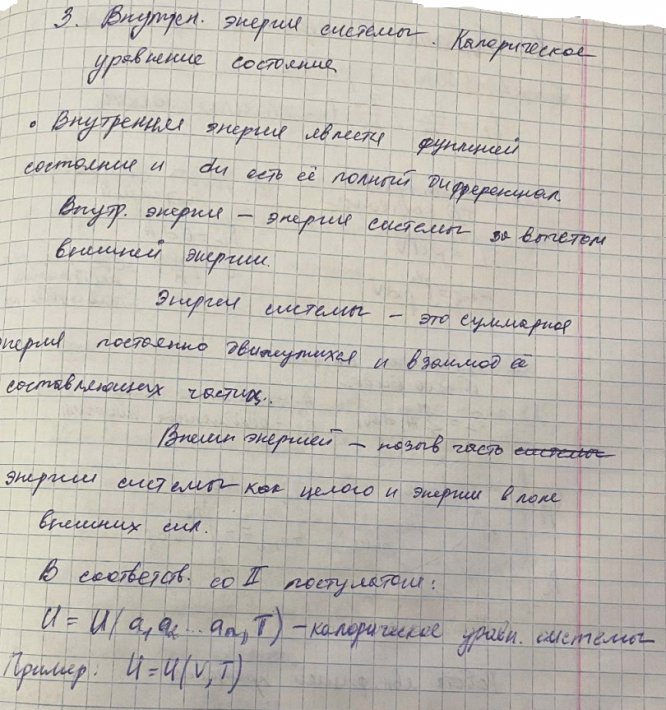 3. Внутрен. энергия системы. Калорическое
уравнение состояние
• Внутренняя энергия является функцией
состояния и du есть её полный дифференциал.
Внутр. энергия – энергия системы за вычетом
внешней энергии.
Энергия системы – это суммарная
энергия постоянно движущихся и взаимод её
составляющих частиц..
Внешн энергией – назыв часть системы
энергии системы как целого и энергии в поле
внешних сил.
В соответств. со II постулатом:
U = U(a₁ a₂ ... aₙ, T) – калорическое уравн. системы
Пример: U = U(V, T)